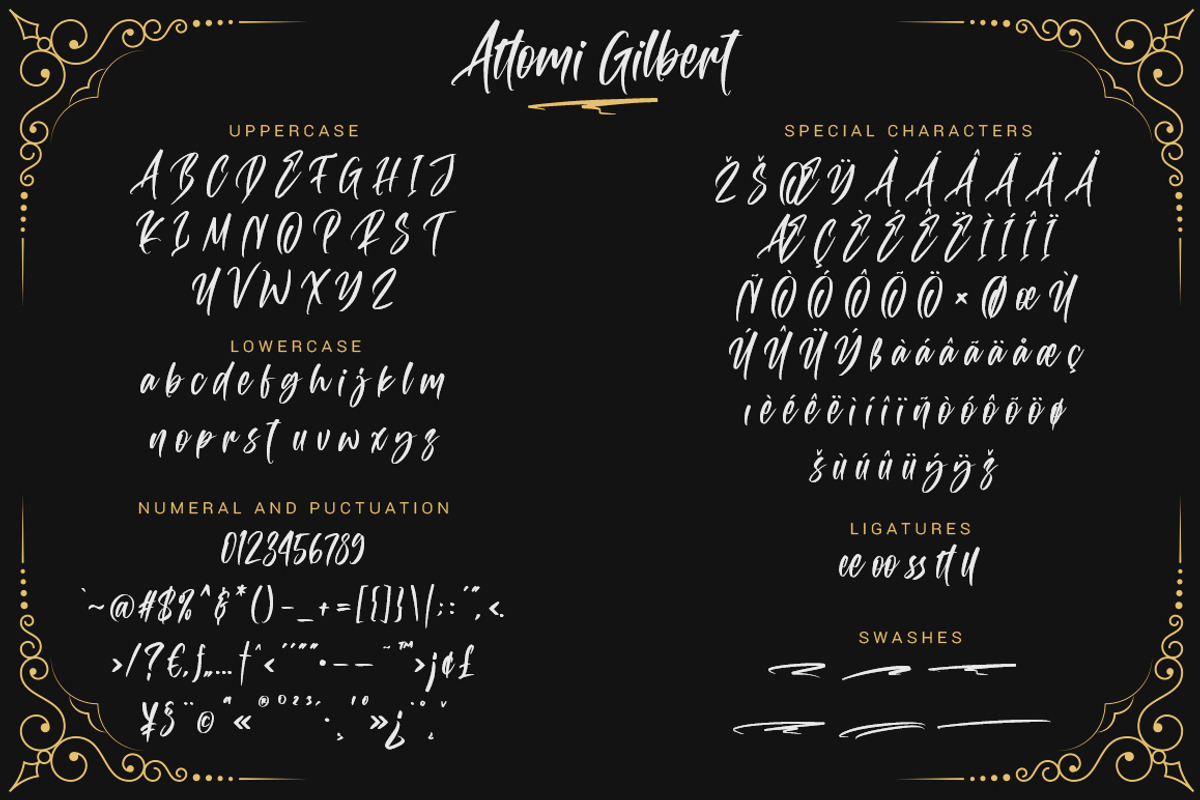 Attomi Gilbert
UPPERCASE
A B C D E F G H I J
K L M N O P R S T
U V W X Y Z
LOWERCASE
a b c d e f g h i j k l m
n o p r s t u v w x y z
NUMERAL AND PUCTUATION
0123456789
`~@#$%^&*()-_+=[{]}\|;:'",<.
>/?€‚ƒ„…†ˆ‹‘’“”•–— ˜™›¡¢£
¥§¨©ª«®°²³´·¸¹º»¿
SPECIAL CHARACTERS
Ž Š Œ Ÿ À Á Â Ã Ä Å
Æ Ç È É Ê Ë Ì Í Î Ï
Ñ Ò Ó Ô Õ Ö × Ø œ Ù
Ú Û Ü Ý ß à á â ã ä å æ ç
ı è é ê ë ì í î ï ñ ò ó ô õ ö ø
š ù ú û ü ý ÿ ž
LIGATURES
ee oo ss tt ll
SWASHES